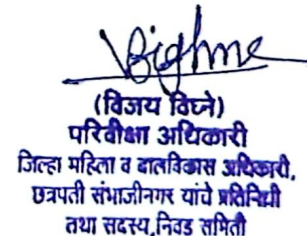 Vighne
(विजय विघ्ने)
परिवीक्षा अधिकारी
जिल्हा महिला व बालविकास अधिकारी,
छत्रपती संभाजीनगर यांचे प्रतिनिधी
तथा सदस्य, निवड समिती